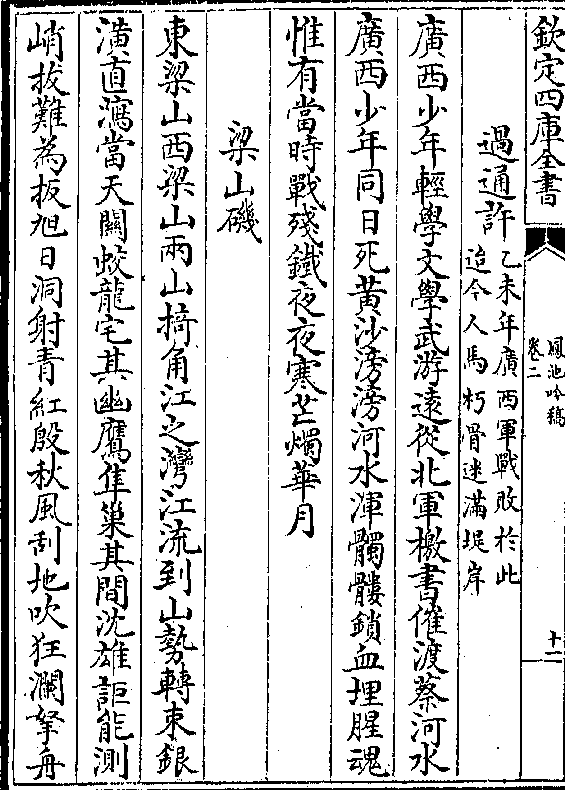 欽定四庫全書
鳳池吟稿
卷二
十二
過通許乙未年廣西軍戰敗於此
迨今人馬朽骨迷滿堤岸
廣西少年輕學文學武游遠從北軍檄書催渡蔡河水
廣西少年同日死黄沙滂滂河水渾髑髏鎖血埋腥魂
惟有當時戰殘鐵夜夜寒芒燭華月
梁山磯
東梁山西梁山兩山掎角江之灣江流到山勢轉束銀
潢直瀉當天關蛟龍宅其幽鷹隼巢其間沈雄詎能測
峭拔難為扳旭日洞射青紅殷秋風刮地吹狂瀾拏舟